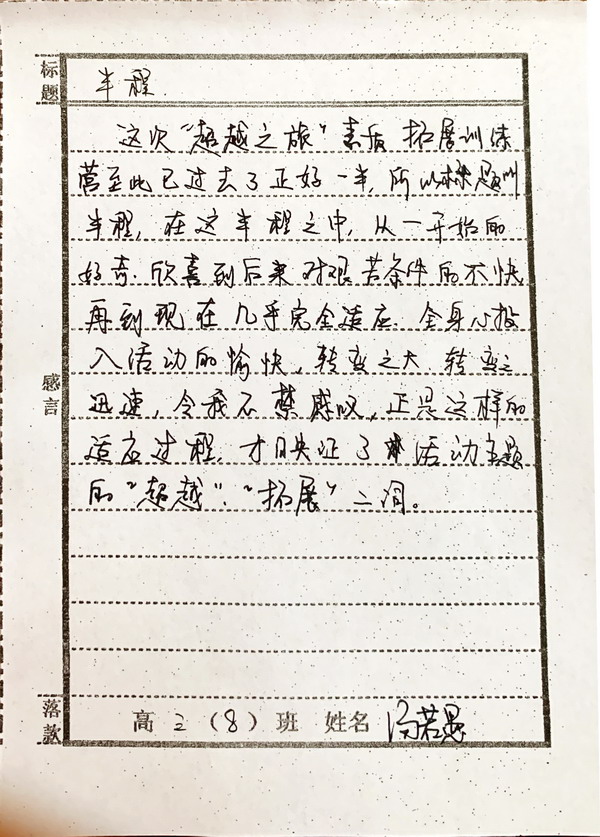 标题
半程
这次“超越之旅”素质拓展训练
营至此已过去了正好一半,所以标题叫
半程,在这半程之中,从一开始的
好奇、欣喜到后来对艰苦条件的不快
再到现在几乎完全适应、全身心投
入活动的愉快,转变之大、转变之
迅速,令我不禁感叹,正是这样的
适应过程,才映证了活动主题
的“超越”、“拓展”二词。
感言
落款
高 2 (8) 班 姓名 冯若愚